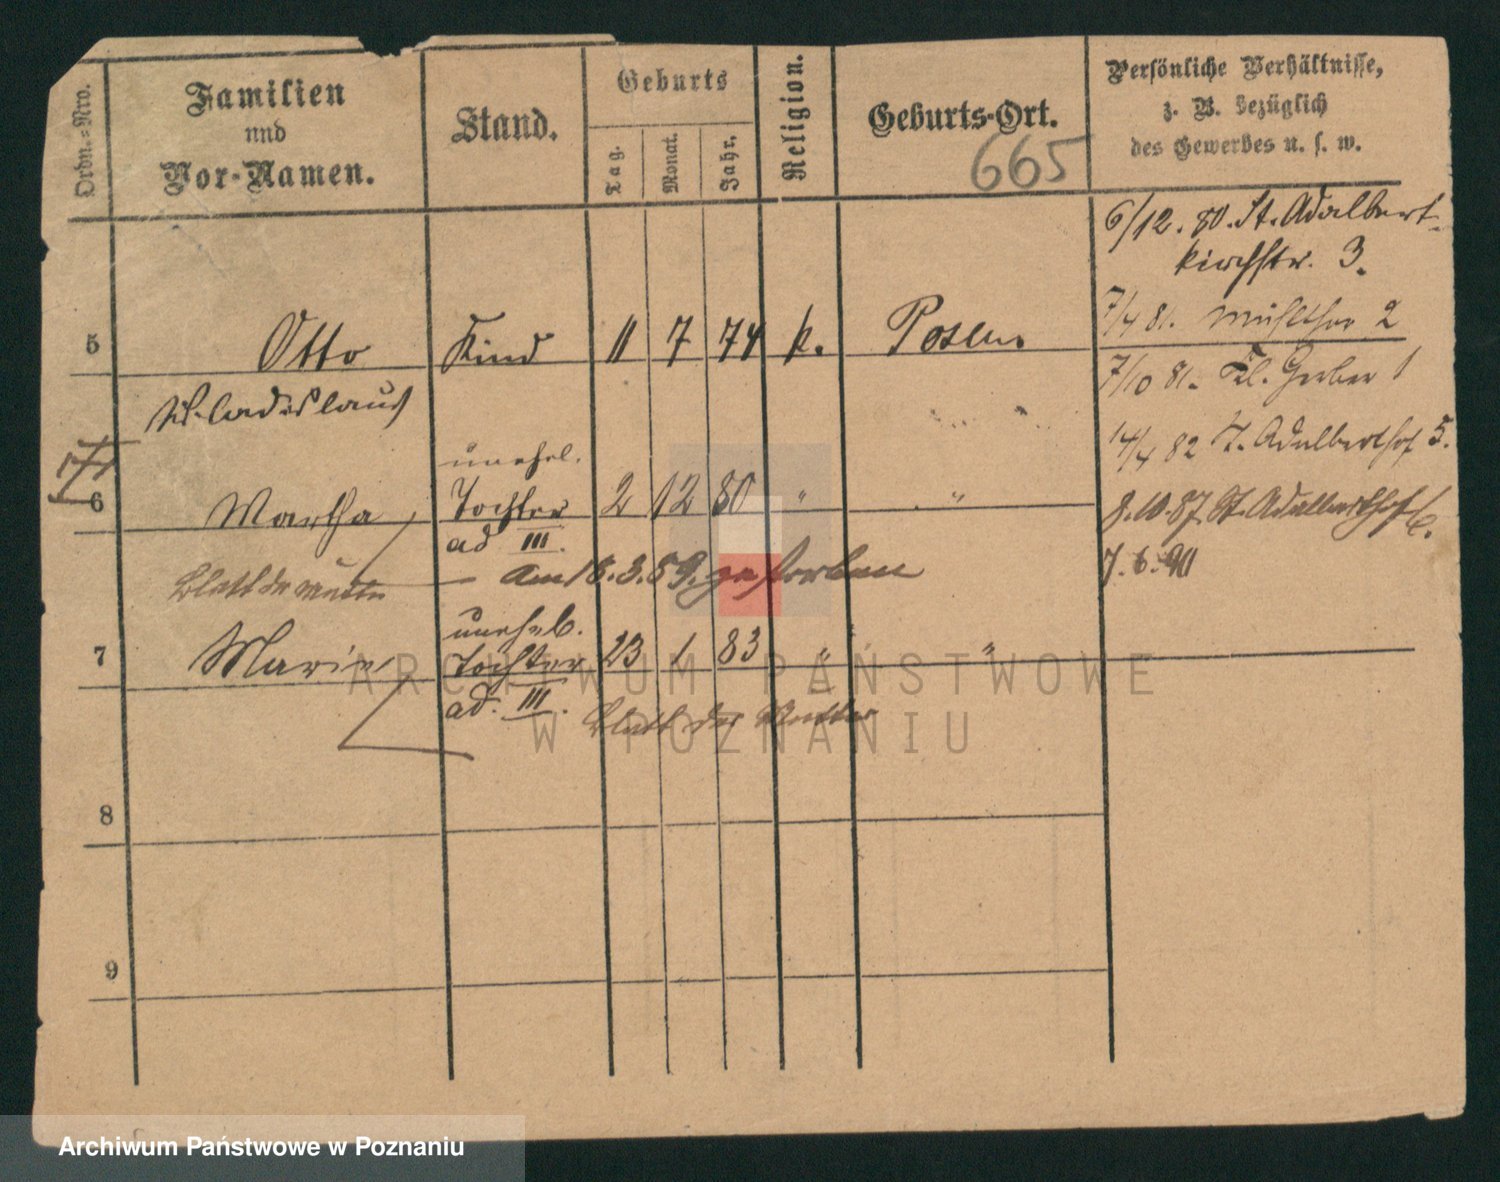 Ordn.=Nro.
Familien
und
Vor=Namen.
Stand.
Geburts
Tag.
Monat.
Jahr.
Religion.
Geburts=Ort.
665
Persönliche Verhältnisse,
z. B. bezüglich
des Gewerbes u. s. w.
6/12. 80. St. Adalbert-
kirchstr. 3.
7/4 81. Mühlthor 2
5 Otto Kind 11 7 74 k. Posen.
7/10 81. Kl. Gerber 1
Wladislaus
14/4 82 St. Adalberthof 5.
unehel.
6 Martha Tochter 2 12 80 " "
8.10.87. St. Adalberthof
ad III.
Blatt der Mutter Am 18.3.89. gestorben
7.6.90
unehel.
7 Marie Tochter 23 1 83 " "
ad. III. Blatt der Mutter
8
9
ARCHIWUM PAŃSTWOWE
W POZNANIU
Archiwum Państwowe w Poznaniu